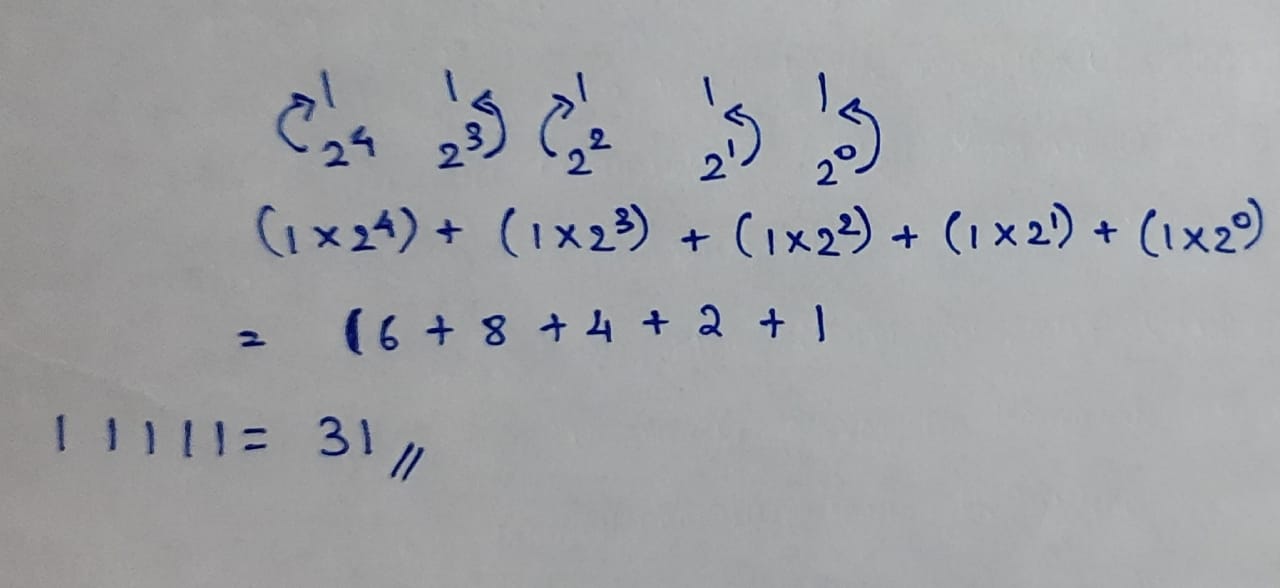 1 1 1 1 1
2⁴ 2³ 2² 2¹ 2⁰
(1×2⁴) + (1×2³) + (1×2²) + (1×2¹) + (1×2⁰)
= 16 + 8 + 4 + 2 + 1
11111 = 31 //